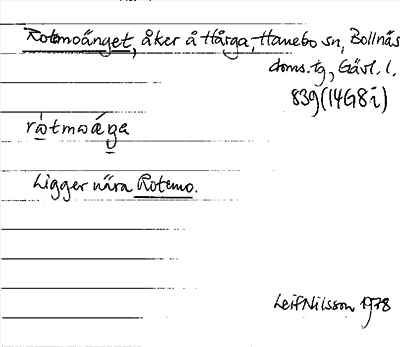 Rotmoänget, åker å Hårga, Hanebo sn, Bollnäs
doms.tg, Gävl. l.
839 (14G8i)
Ligger nära Rotemo.
Leif Nilsson 1978